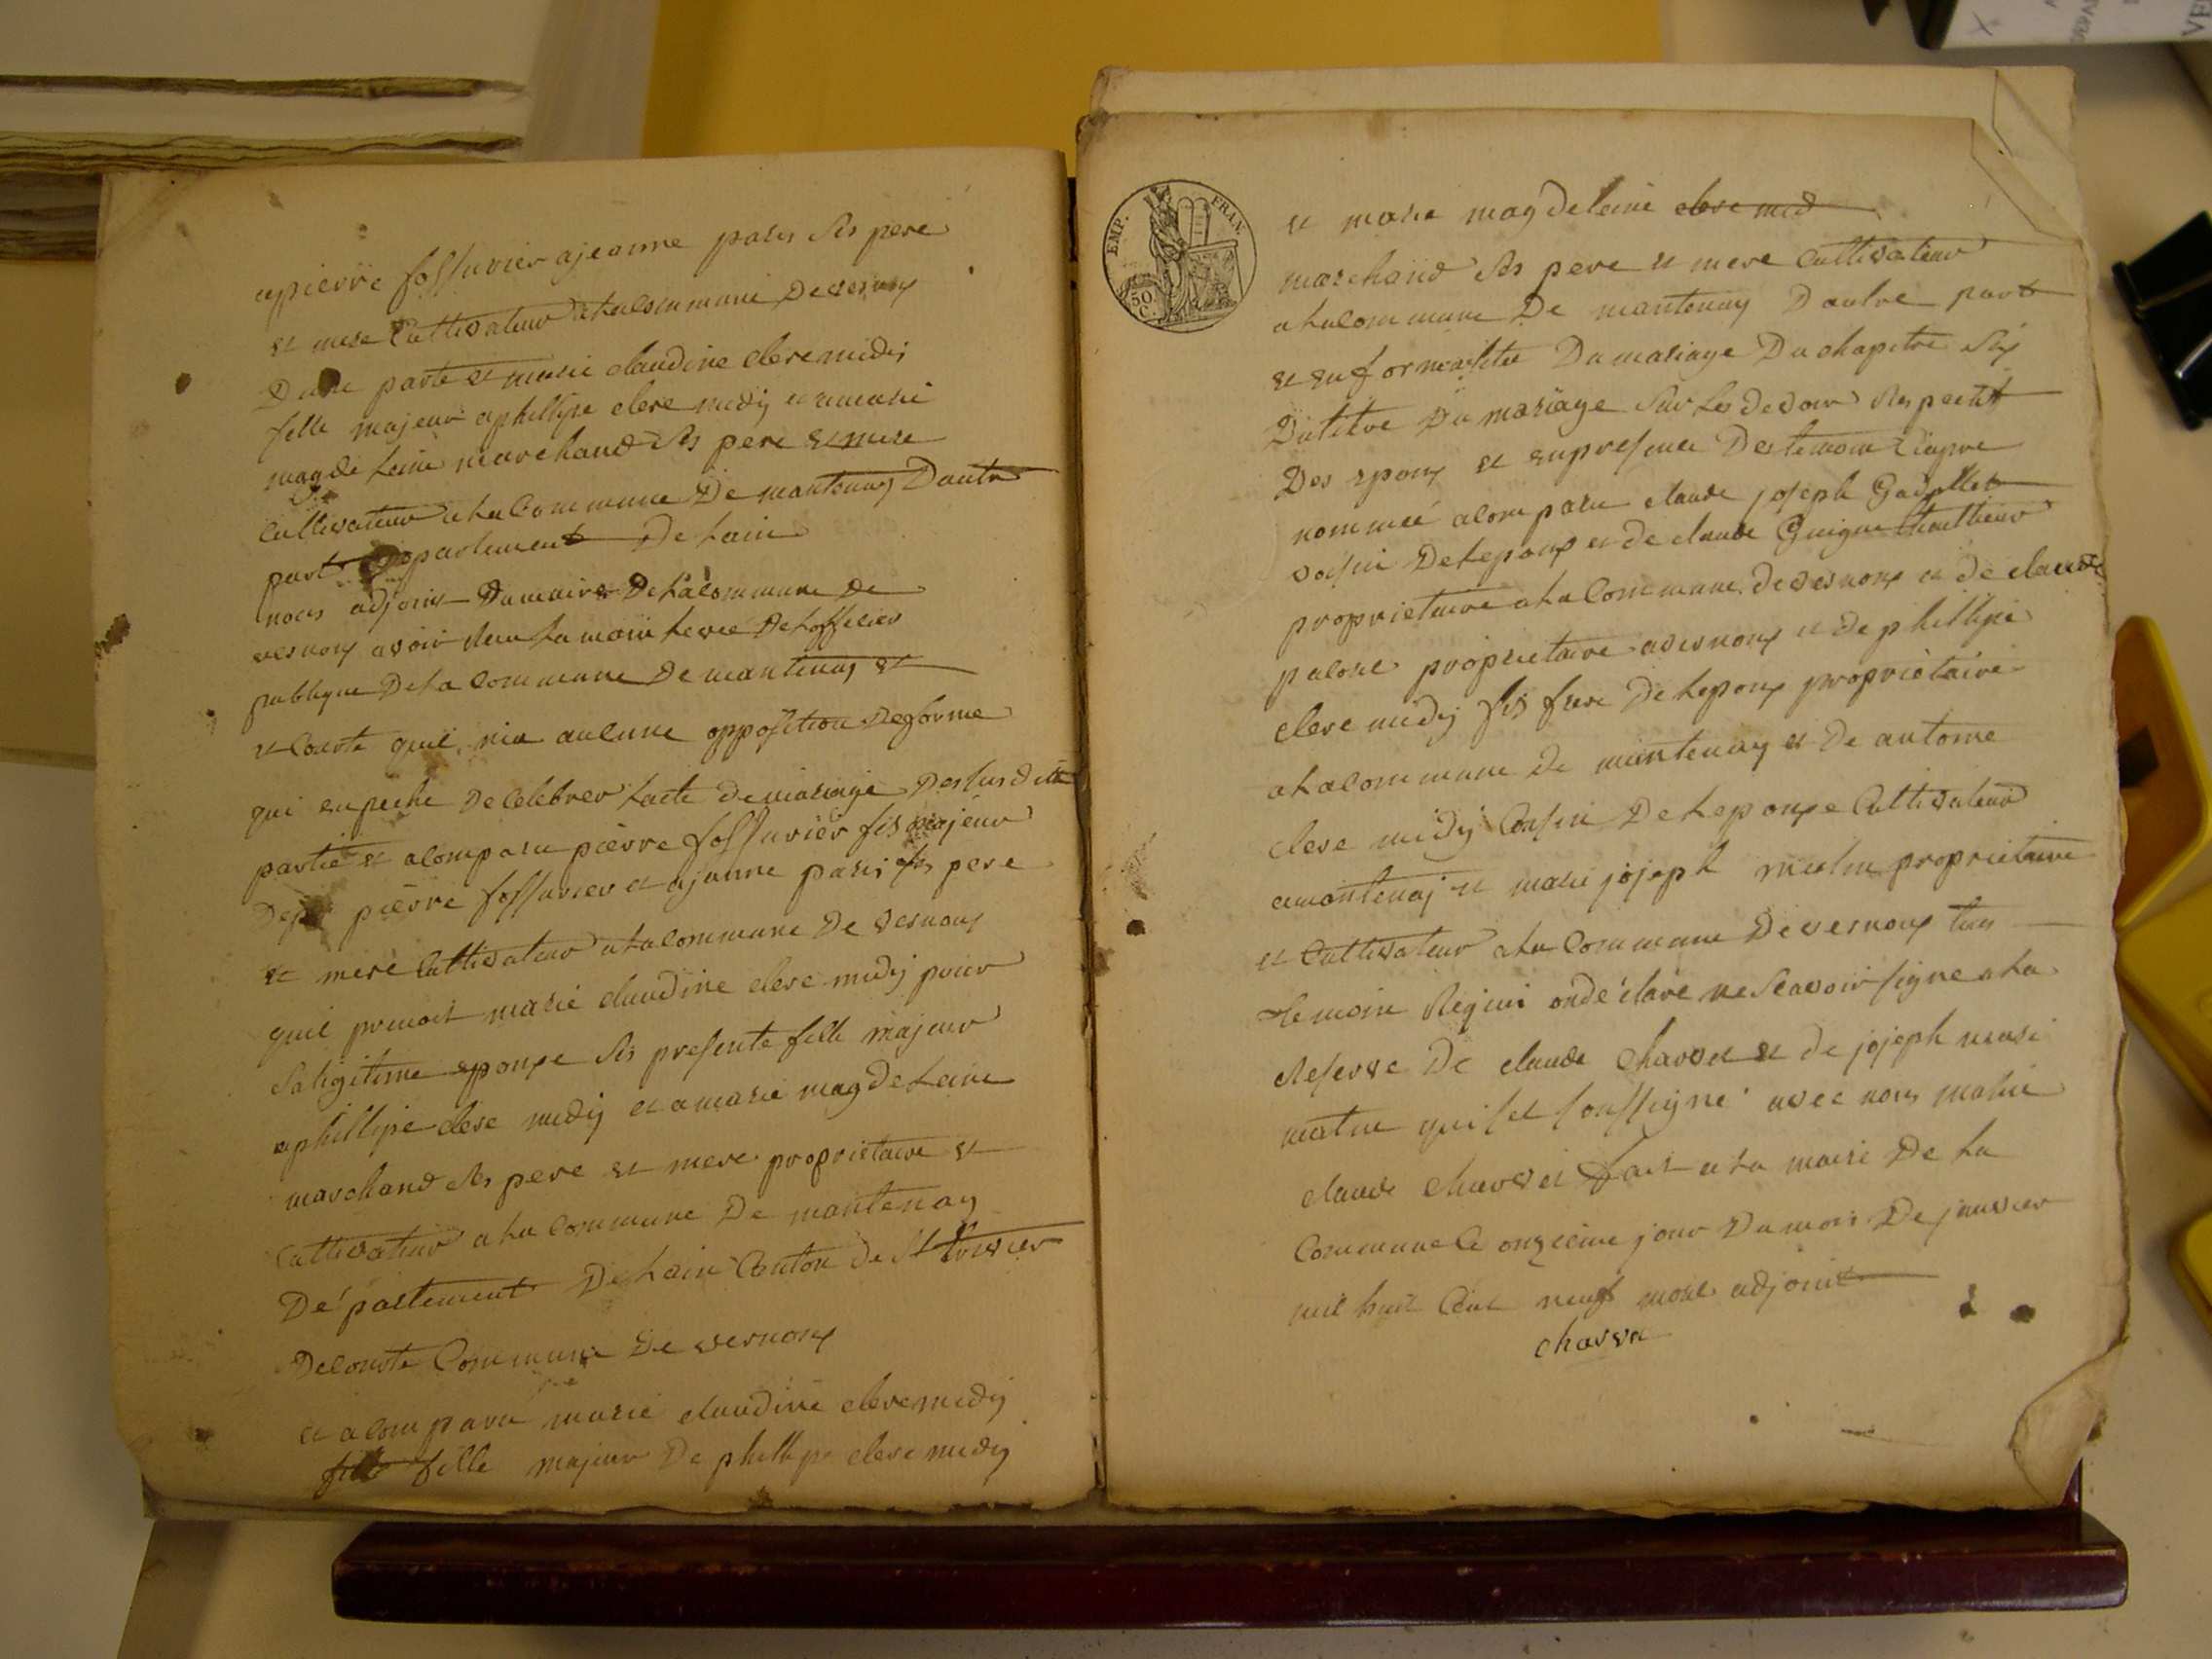 apierre fossurier ajeanne paris ses pere
et mere Cultivateur alacommune Devernoux
Dune parte et marie claudine cleremidy
fille majeur aphillipe clere midy et amarie
magdeleine marchand ses pere et mere
Cultivateur ala Commune De mantenay Dautre
part Departement De Lain
nous adjoins Du maire Delacommune De
vernoux avoir Lamain levee Delofficier
publique Dela Commune De mantenay et
et Conste quil nia aulune opposition
qui enpeche De Celebrer Lacte de mariage
partie et acomparu pierre fossurier fis majeur
pierre fossurier et ajanne paris ses pere
et mere Cultivateur alacommune De vernoux
quil prenoit marie claudine clere midy pour
Saligitime epouxe presente fille majeur
aphillipe clere midy et amarie magdeleine
marchand ses pere et mere proprietaire et
Cultivateur ala Commune De mantenay
Departement De Lain Canton de St trivier
Commune De vernoux
et acomparu marie claudine cleremidy
fille fille majeur De phillipe clere midy
EMP. FRAN.
50 C.
et marie magdeleine clere mid
marchand ses pere et mere Cultivateur
alacommune De mantenay Dautre part
Du mariage Du chapitre Six
Dutitre Du mariage Sur Les devoir Respectif
Des epoux et enpresence Des temoin Ciapre
nommeé acomparu claude joseph
voisin Delepoux et de claude
proprietaire ala Commune devernoux et de claude
proprietaire avernoux et de phillipe
clere midy frere De Lepoux proprietaire
alacommune de mantenay et De antoine
clere midy Cousin De Lepouxe Cultivateur
amantenaj et marie jojeph proprietaire
et Cultivateur ala Commune De vernoux tous
temoin Requi ondéclare ne Scavoir signe ala
Reserve De claude charvet et de jojeph
qui soussigné avec nous
claude charvet fait ala mairi De La
Commune Le onzieme jour Du mois De janvier
mil huit Cent neuf adjoint
charvet